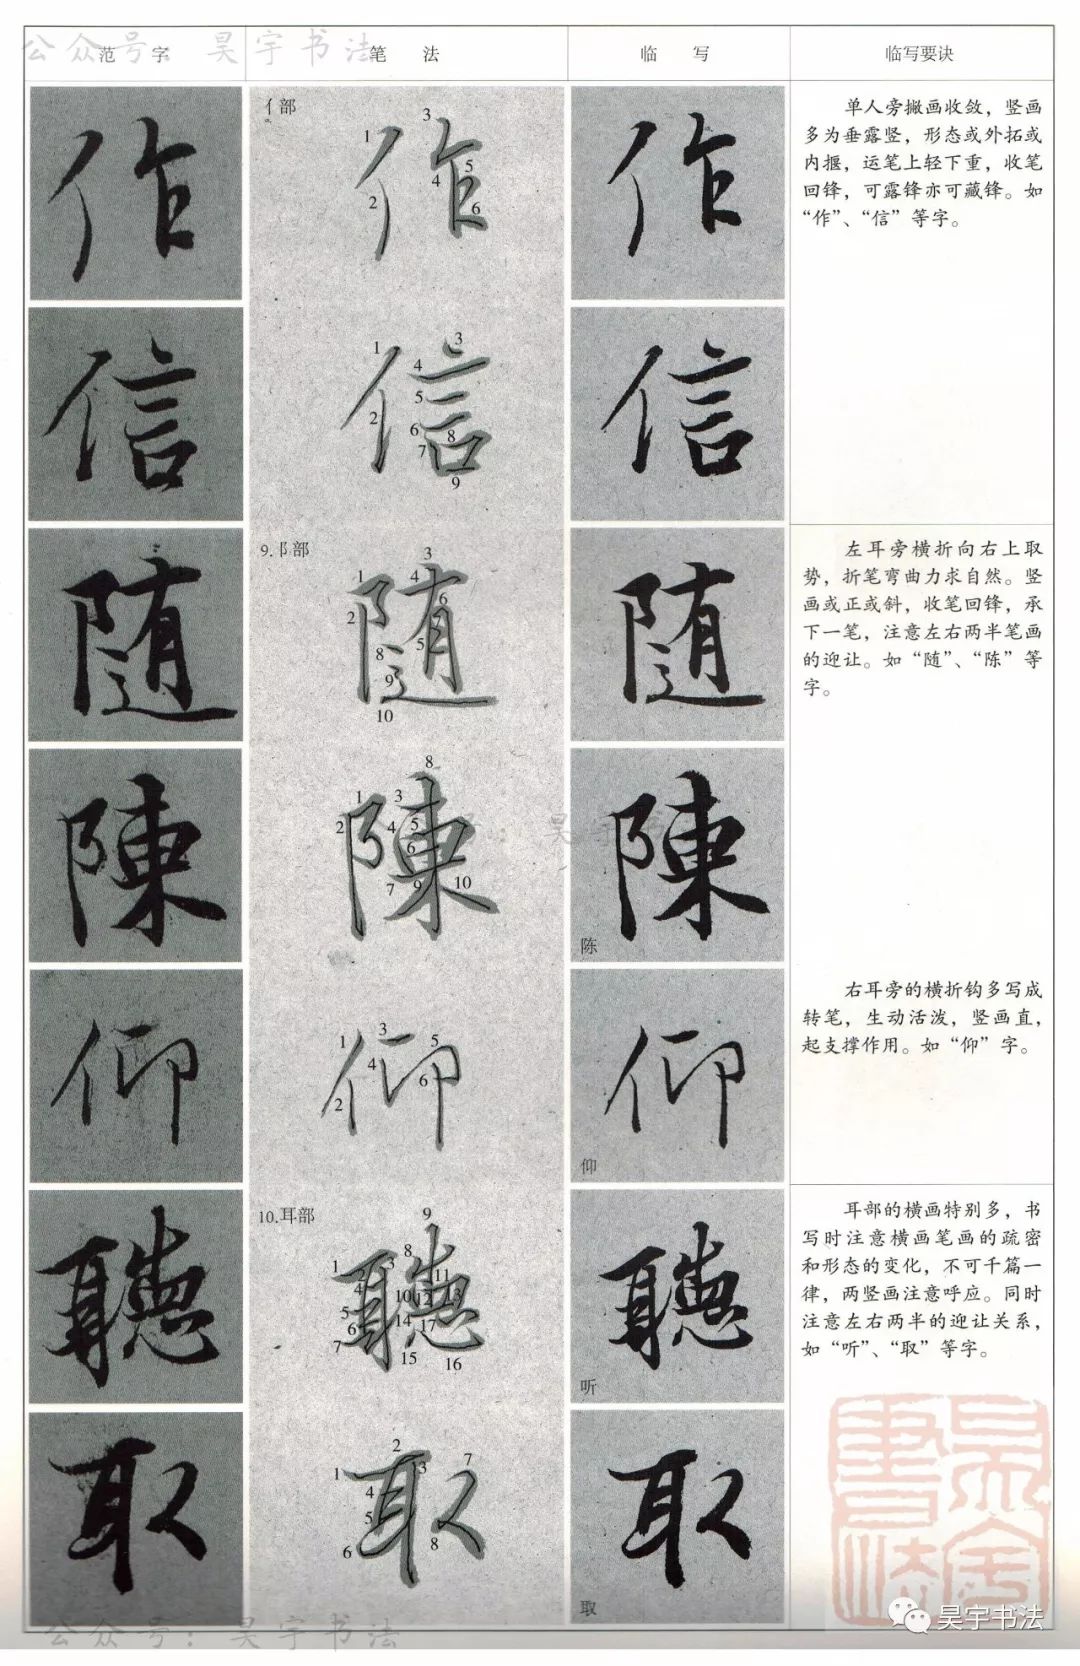 公众号：昊宇书法
范 字
笔 法
临 写
临写要诀
作
亻部
1
2
3
4
5
6
作
作
单人旁撇画收敛，竖画
多为垂露竖，形态或外拓或
内擫，运笔上轻下重，收笔
回锋，可露锋亦可藏锋。如
“作”、“信”等字。
信
1
2
3
4
5
6
7
8
9
信
信
随
9.阝部
1
2
3
4
5
6
8
9
10
随
随
左耳旁横折向右上取
势，折笔弯曲力求自然。竖
画或正或斜，收笔回锋，承
下一笔，注意左右两半笔画
的迎让。如“随”、“陈”等
字。
陳
1
2
3
4
5
6
7
8
9
10
陳
陳
陈
仰
1
2
3
4
5
6
仰
仰
仰
右耳旁的横折钩多写成
转笔，生动活泼，竖画直，
起支撑作用。如“仰”字。
聽
10.耳部
1
2
3
4
5
6
7
8
9
10
11
12
13
14
15
16
17
聽
聽
听
耳部的横画特别多，书
写时注意横画笔画的疏密
和形态的变化，不可千篇一
律，两竖画注意呼应。同时
注意左右两半的迎让关系，
如“听”、“取”等字。
取
1
2
3
4
5
6
7
8
取
取
取
昊宇書法
昊宇书法
公众号：昊宇书法